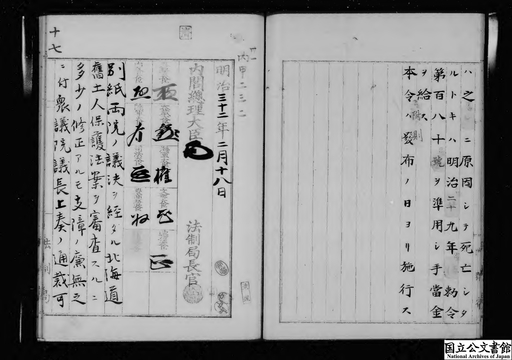 ハ之 ニ原因シテ死亡シタ
ルトキハ明治二十九年 勅令
第百八十 號ヲ準用シ手當金
ヲ給ス
附則
本令ハ發布ノ日ヨリ施行ス
丙甲二三二
明治三十二年二月十八日
内閣總理大臣
法制局長官
別紙両院ノ議決ヲ經タル北海道
舊土人保護法案ヲ審査スルニ
多少ノ修正アルモ支障ノ廉無之
ニ付衆議院議長上奏ノ通裁可
十七
国立公文書館
National Archives of Japan